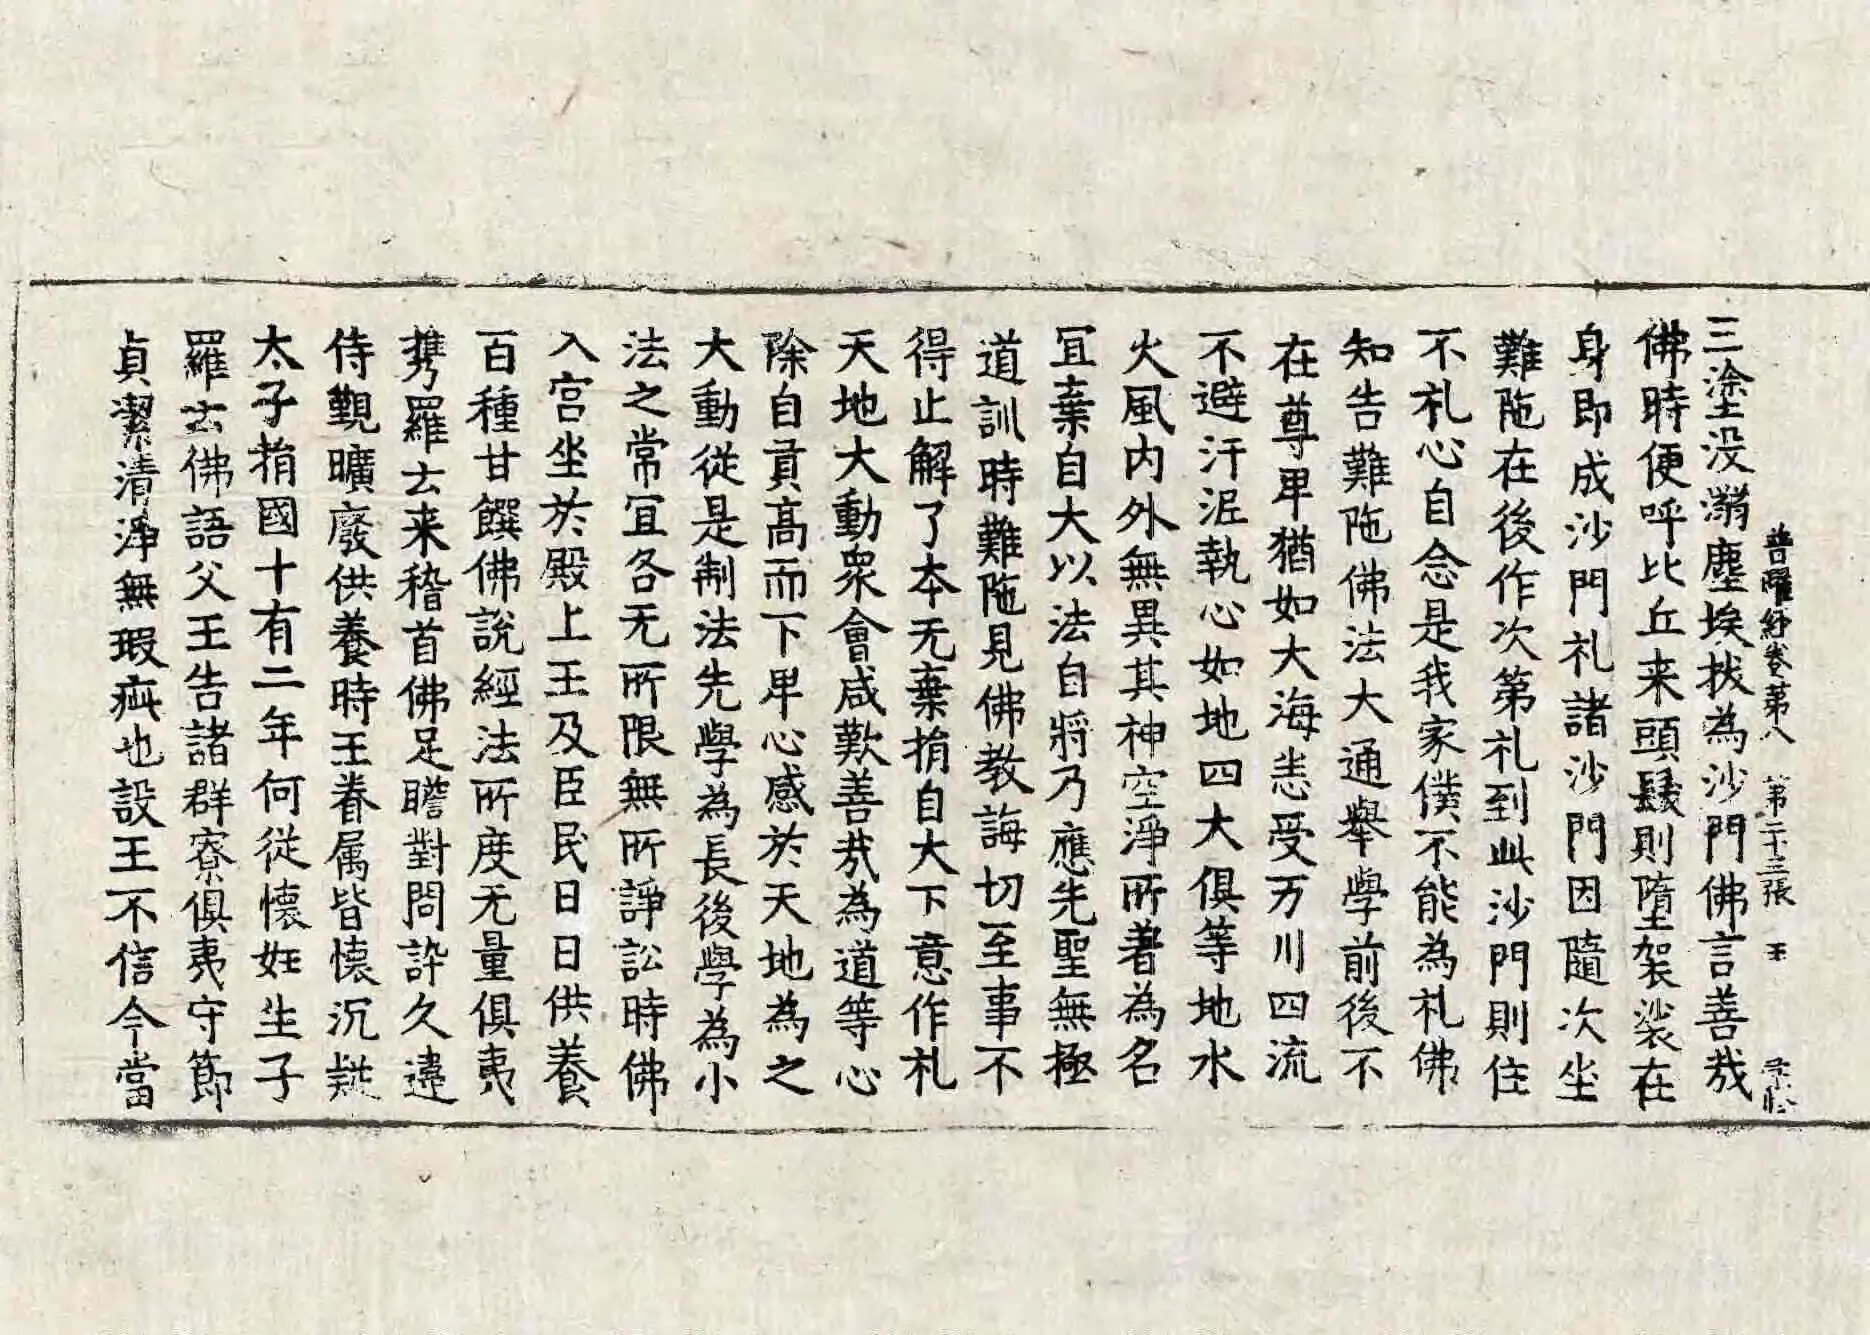 普曜經卷第八 第二十三張 王
三塗没溺塵埃拔為沙門佛言善㢤
佛時便呼比丘来頭鬚則墮袈裟在
身即成沙門礼諸沙門因隨次坐
難陁在後作次第礼到此沙門則住
不礼心自念是我家僕不能為礼佛
知告難陁佛法大通舉學前後不
在尊卑猶如大海悉受万川四流
不避汙泥執心如地四大俱等地水
火風内外無異其神空淨所著為名
冝棄自大以法自將乃應先聖無極
道訓時難陁見佛教誨切至事不
得止解了本无棄捐自大下意作礼
天地大動衆會咸歎善㢤為道等心
除自貢高而下卑心感於天地為之
大動從是制法先學為長後學為小
法之常冝各无所限無所諍訟時佛
入宫坐於殿上王及臣民日日供養
百種甘饌佛說經法所度无量俱夷
携羅云来稽首佛足瞻對問訊久違
侍覲曠廢供養時王眷属皆懷沉疑
太子捐國十有二年何從懷妊生子
羅云佛語父王告諸群寮俱夷守節
貞潔清淨無瑕疵也設王不信今當